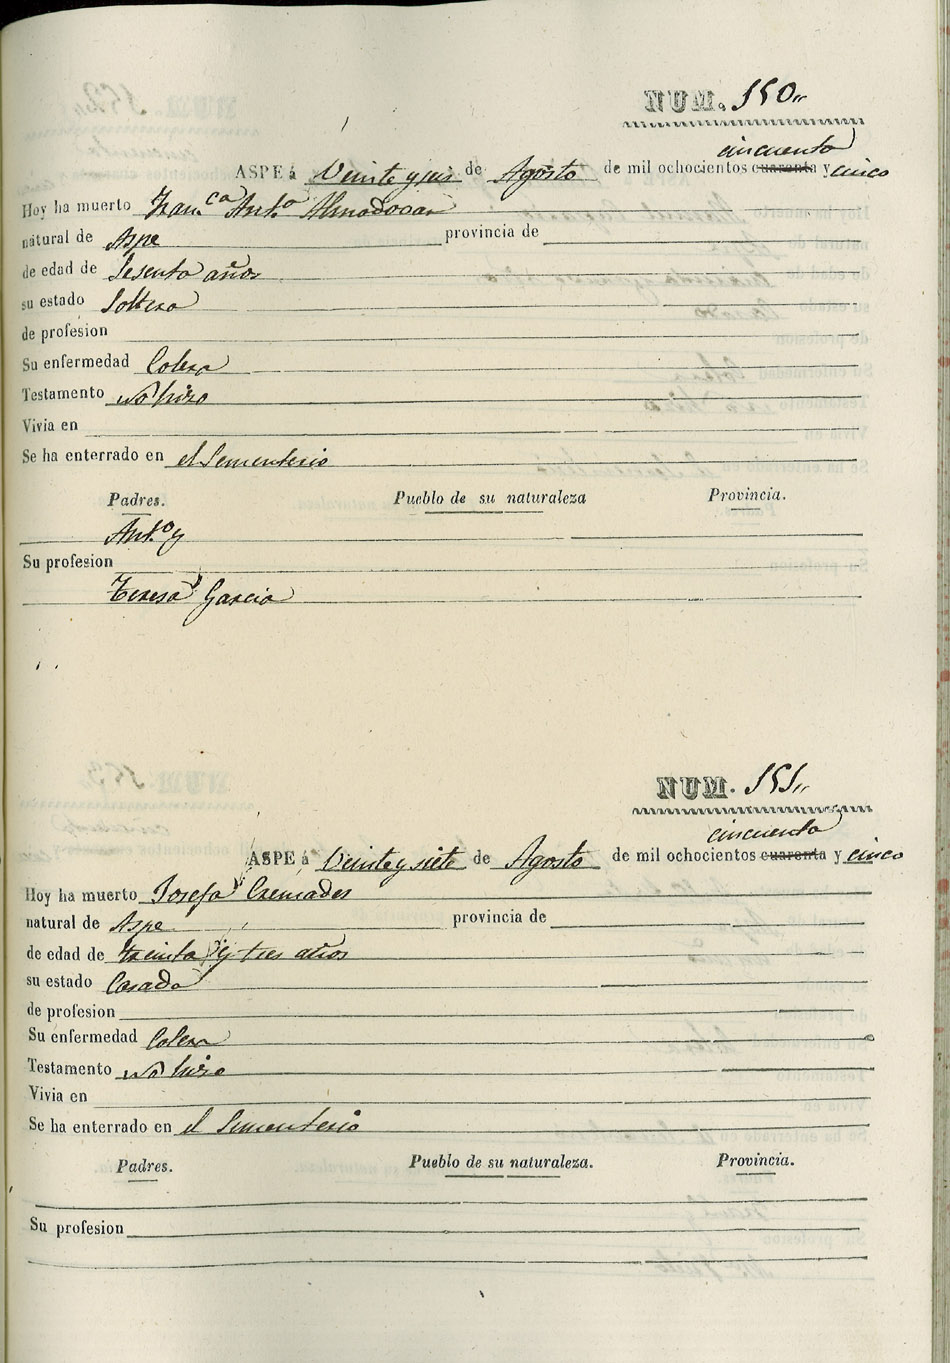 NUM. 150
cincuenta
ASPE á Veinte y seis de Agosto de mil ochocientos cuarenta y cinco
Hoy ha muerto Fran.ca Ant.a Almodovar
natural de Aspe provincia de
de edad de Sesenta años
su estado Soltera
de profesion
Su enfermedad Colera
Testamento no hizo
Vivia en
Se ha enterrado en el Sementerio
Padres. Pueblo de su naturaleza Provincia.
Ant.o y
Su profesion
Teresa Garcia
NUM. 151
cincuenta
ASPE á Veinte y siete de Agosto de mil ochocientos cuarenta y cinco
Hoy ha muerto Josefa Cremades
natural de Aspe provincia de
de edad de treinta y tres años
su estado Casada
de profesion
Su enfermedad Colera
Testamento no hizo
Vivia en
Se ha enterrado en el Sementerio
Padres. Pueblo de su naturaleza. Provincia.
Su profesion